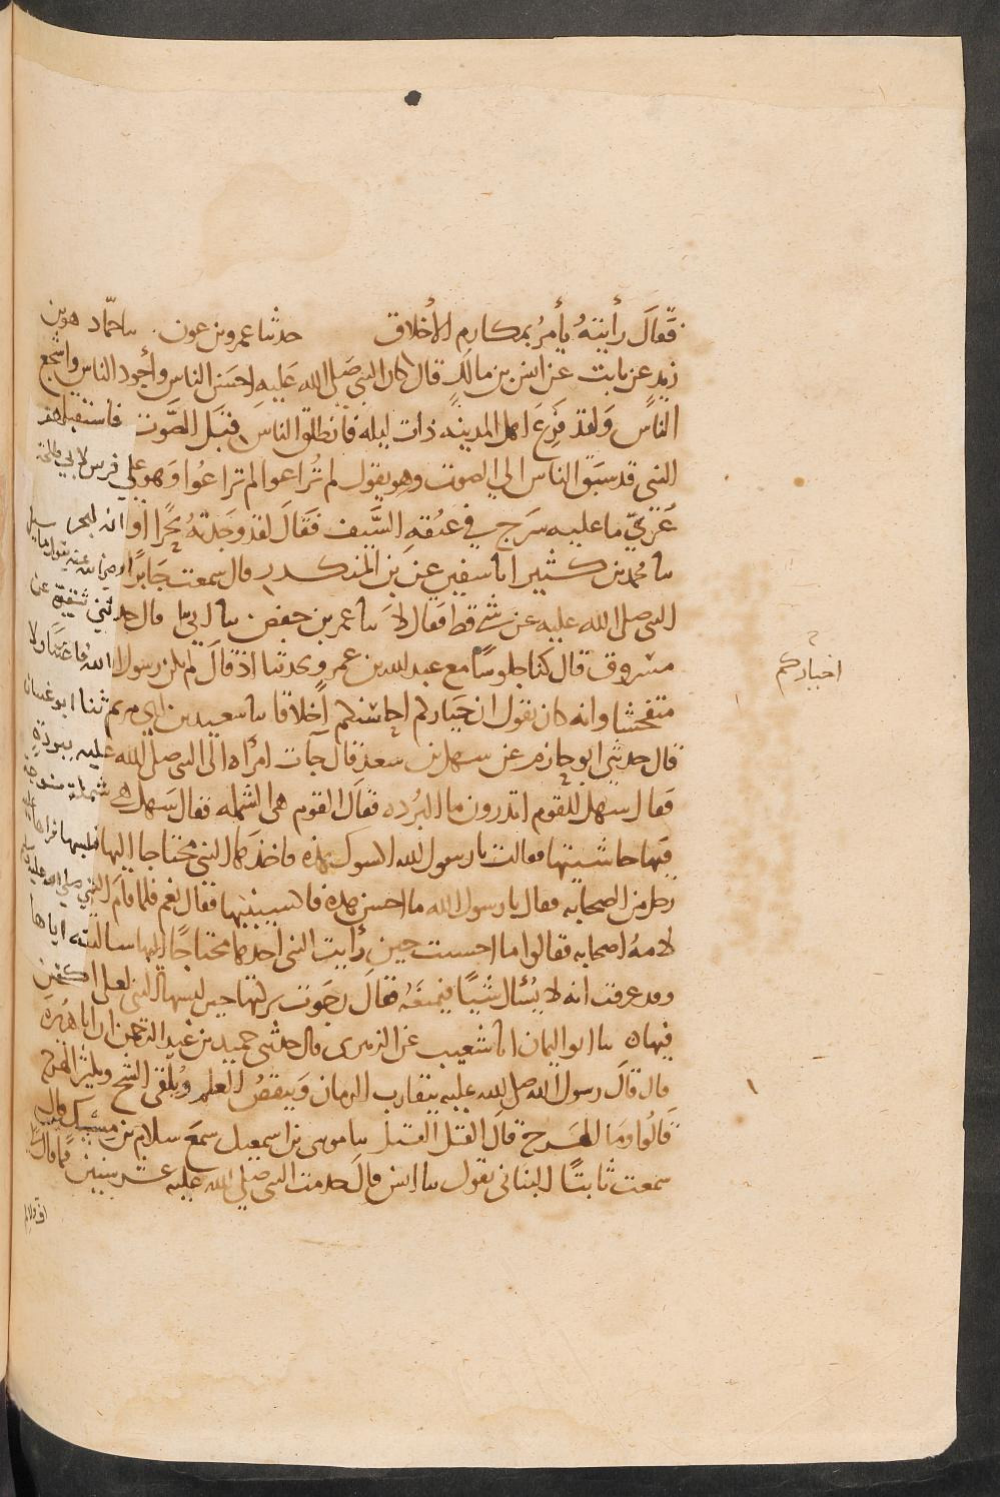 فقال رأيته يأمر بمكارم الأخلاق حدثنا عمرو بن عون نا حماد هو بن
زيد عن ثابت عن انس بن مالك قال كان النبي صلى الله عليه احسن الناس وأجود الناس واشجع
الناس ولقد فزع اهل المدينه ذات ليله فانطلق الناس قبل الصوت فاستقبلهم
النبى قد سبق الناس الى الصوت وهو يقول لم تراعوا لم تراعوا وهو على فرس لابي طلحة
عري ما عليه سرج في عنقه السيف فقال لقد وجدته بحرا او انه لبحر
نا محمد بن كثير انا سفين عن بن المنكدر قال سمعت جابرا رضي الله عنه يقول ما سيل
النبى صلى الله عليه عن شي قط فقال لا نا عمر بن حفص نا ابي نا قال حدثني شقيق عن
مسروق قال كنا جلوسا مع عبد الله بن عمرو يحدثنا اذ قال لم يكن رسول الله فاحشا ولا
متفحشا وانه كان يقول ان خياركم احاسنكم اخلاقا نا سعيد بن ابي مريم ثنا ابو غسان
قال حدثني ابو حازم عن سهل بن سعد قال جات امرأه الى النبى صلى الله عليه ببردة
فقال سهل للقوم اتدرون ما البرده فقال القوم هى الشمله فقال سهل هي شملة منسوجة
فيها حاشيتها فقالت يا رسول الله اكسوك هذه فاخذها النبي محتاجا اليها فلبسها فراها عليه
رجل من الصحابه فقال يا رسول الله ما احسن هذه فاكسنيها فقال نعم فلما قام النبي صلى الله عليه
لامه اصحابه فقالوا ما احسنت حين رأيت النبى اخذها محتاجا اليها سالته اياها
وقد عرفت انه لا يسأل شيئا فيمنعه فقال رجوت بركتها حين لبسها النبى لعلي اكفن
فيها ه نا ابو اليمان انا شعيب عن الزهرى قال حدثنى حميد بن عبد الرحمن ان ابا هريرة
قال قال رسول الله صلى الله عليه يتقارب الزمان وينقص العلم ويلقى الشح ويكثر الهرج
قالوا وما الهرج قال القتل القتل نا موسى بن اسمعيل سمع سلام بن مسكين قال
سمعت ثابتا البنانى يقول نا انس قال خدمت النبى صلى الله عليه عشر سنين فما قال لي
اف ولا لم
اخياركم